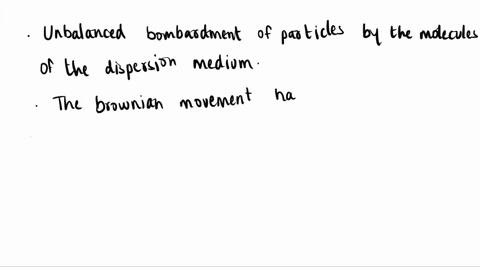 . Unbalanced bombardment of particles by the molecules
of the dispersion medium.
. The brownian movement ha